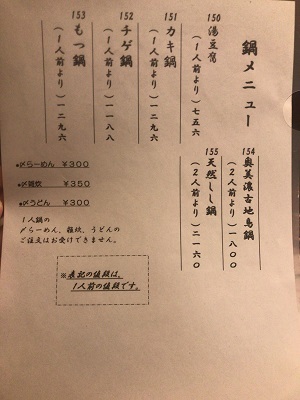 鍋メニュー
150
湯豆腐
(1人前より)七五六
151
カキ鍋
(1人前より)一二九六
152
チゲ鍋
(1人前より)一一八八
153
もつ鍋
(1人前より)一二九六
154
奥美濃古地鳥鍋
(2人前より)一八〇〇
155
天然しし鍋
(2人前より)二一六〇
●〆らーめん ¥300
●〆雑炊 ¥350
●〆うどん ¥300
1人鍋の
〆らーめん、雑炊、うどんの
ご注文はお受けできません。
※表記の値段は、
1人前の値段です。